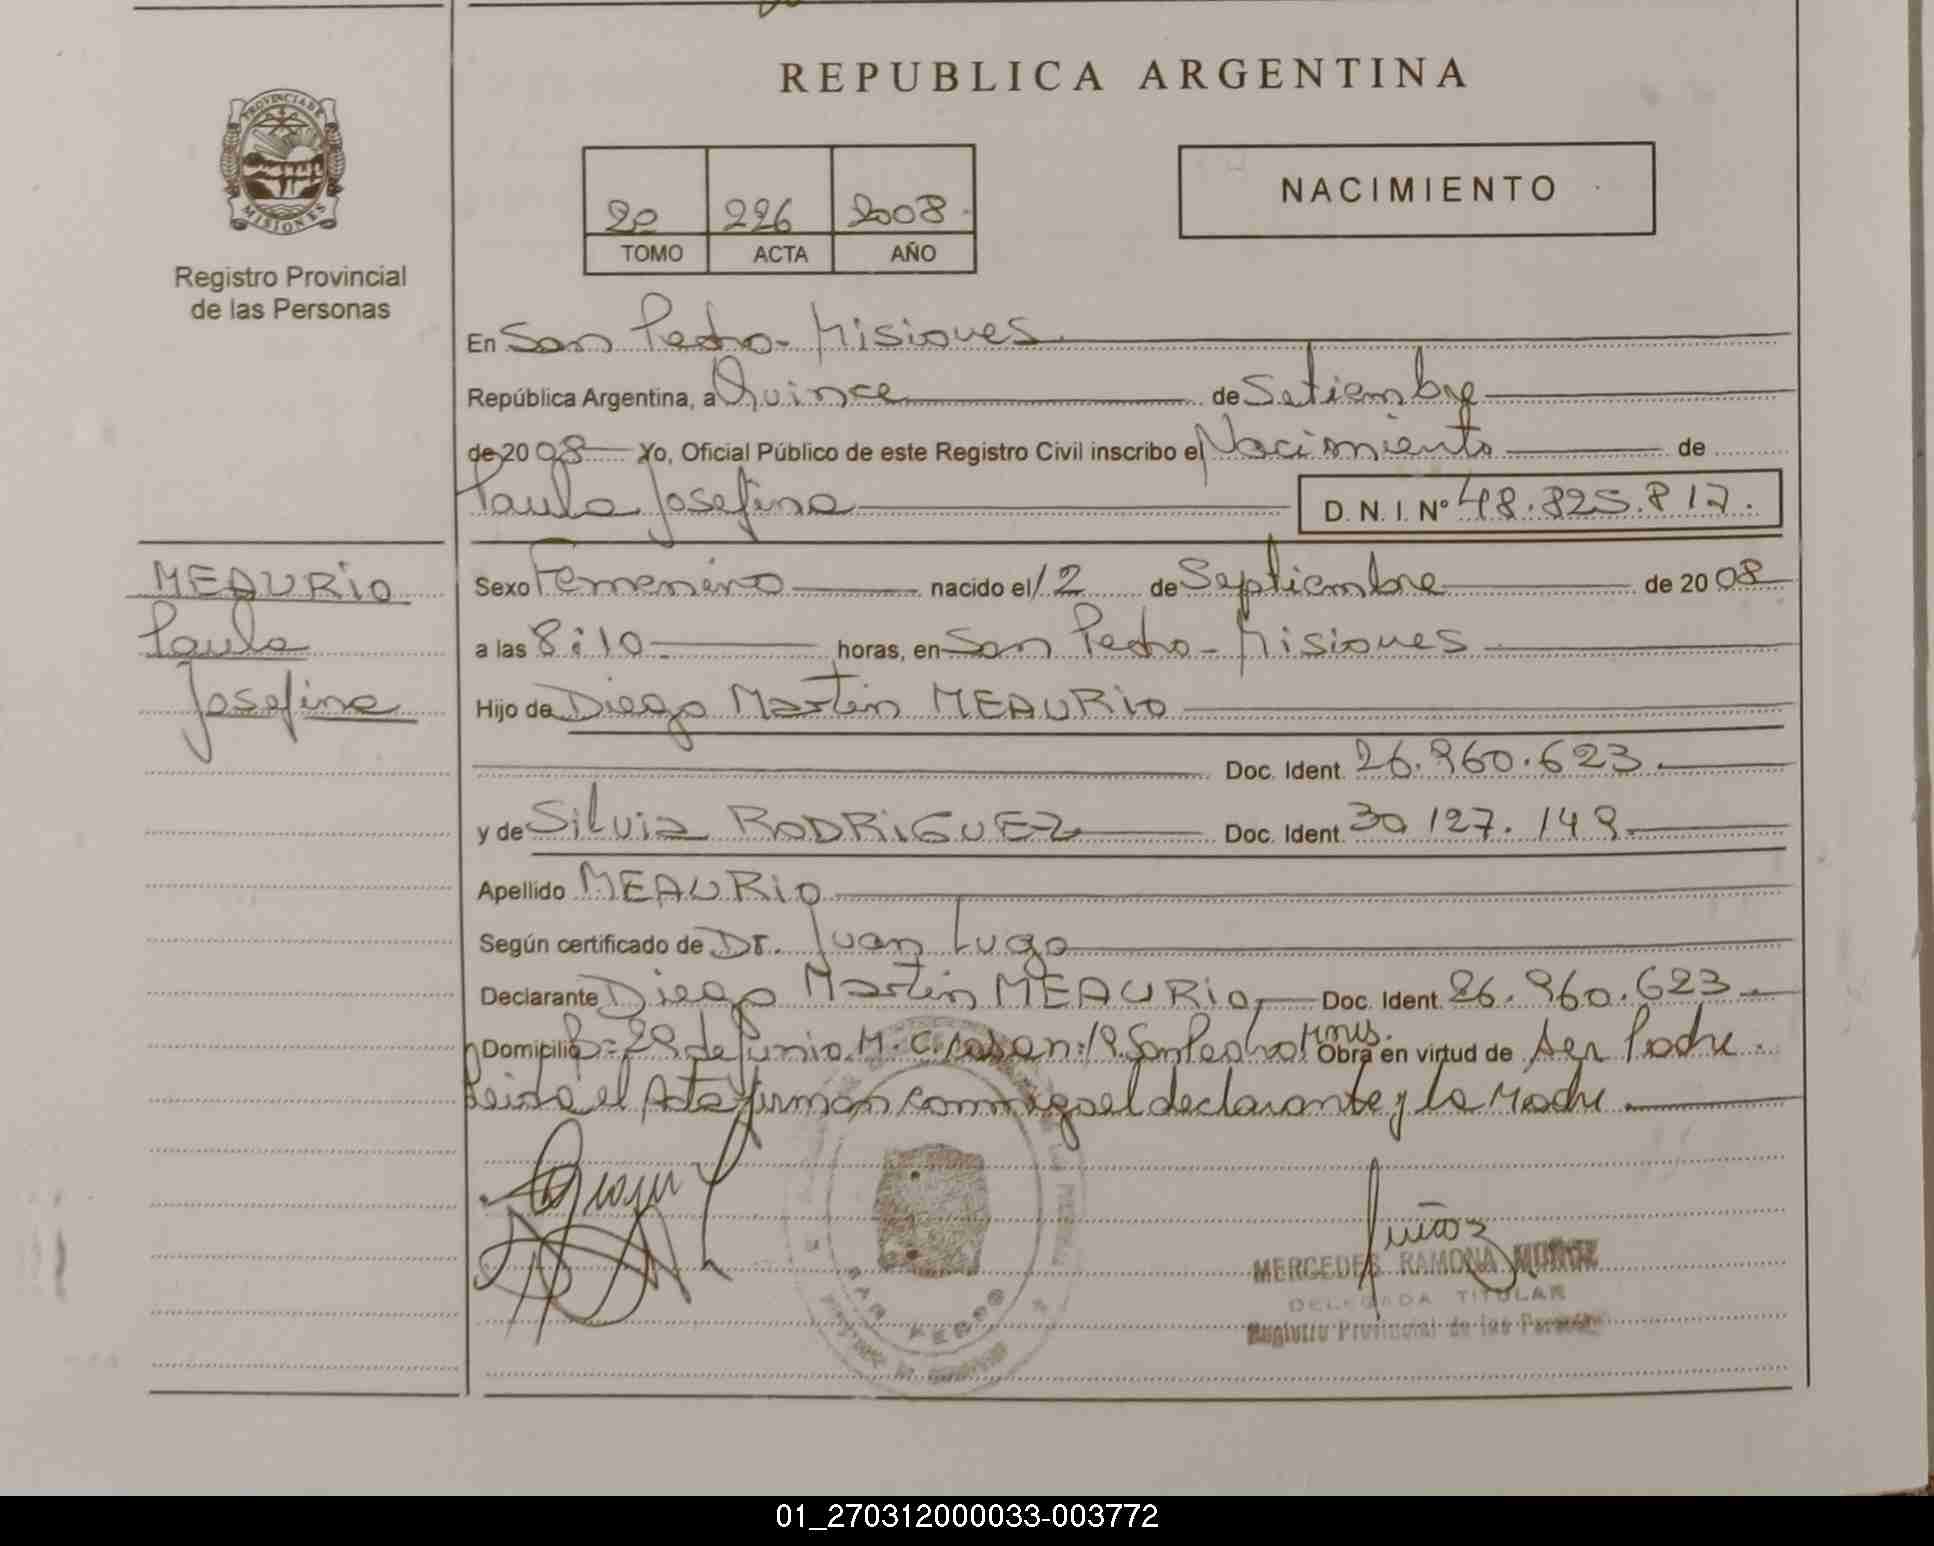 REPUBLICA ARGENTINA
PROVINCIA DE
MISIONES
Registro Provincial
de las Personas
20 226 2008
TOMO ACTA AÑO
NACIMIENTO
En San Pedro - Misiones
República Argentina, a Quince de Setiembre
de 2008 Yo, Oficial Público de este Registro Civil inscribo el Nacimiento de
Paula Josefina D. N. I. Nº 48.825.817.
MEAURIO
Paula
Josefina
Sexo Femenino nacido el 12 de Septiembre de 2008
a las 8:10 horas, en San Pedro - Misiones
Hijo de Diego Martin MEAURIO
Doc. Ident. 26.960.623.
y de Silvia RODRIGUEZ Doc. Ident. 30.127.149
Apellido MEAURIO
Según certificado de Dr. Juan Lugo
Declarante Diego Martin MEAURIO, Doc. Ident. 26.960.623
Domicilio B= 29 de Junio M. C. San Pedro Mnes. Obra en virtud de Ser Padre.
Leida el Acta firman conmigo el declarante y la Madre
Muñoz
MERCEDES RAMONA MUÑOZ
DELEGADA TITULAR
Registro Provincial de las Personas
SAN PEDRO
01_270312000033-003772